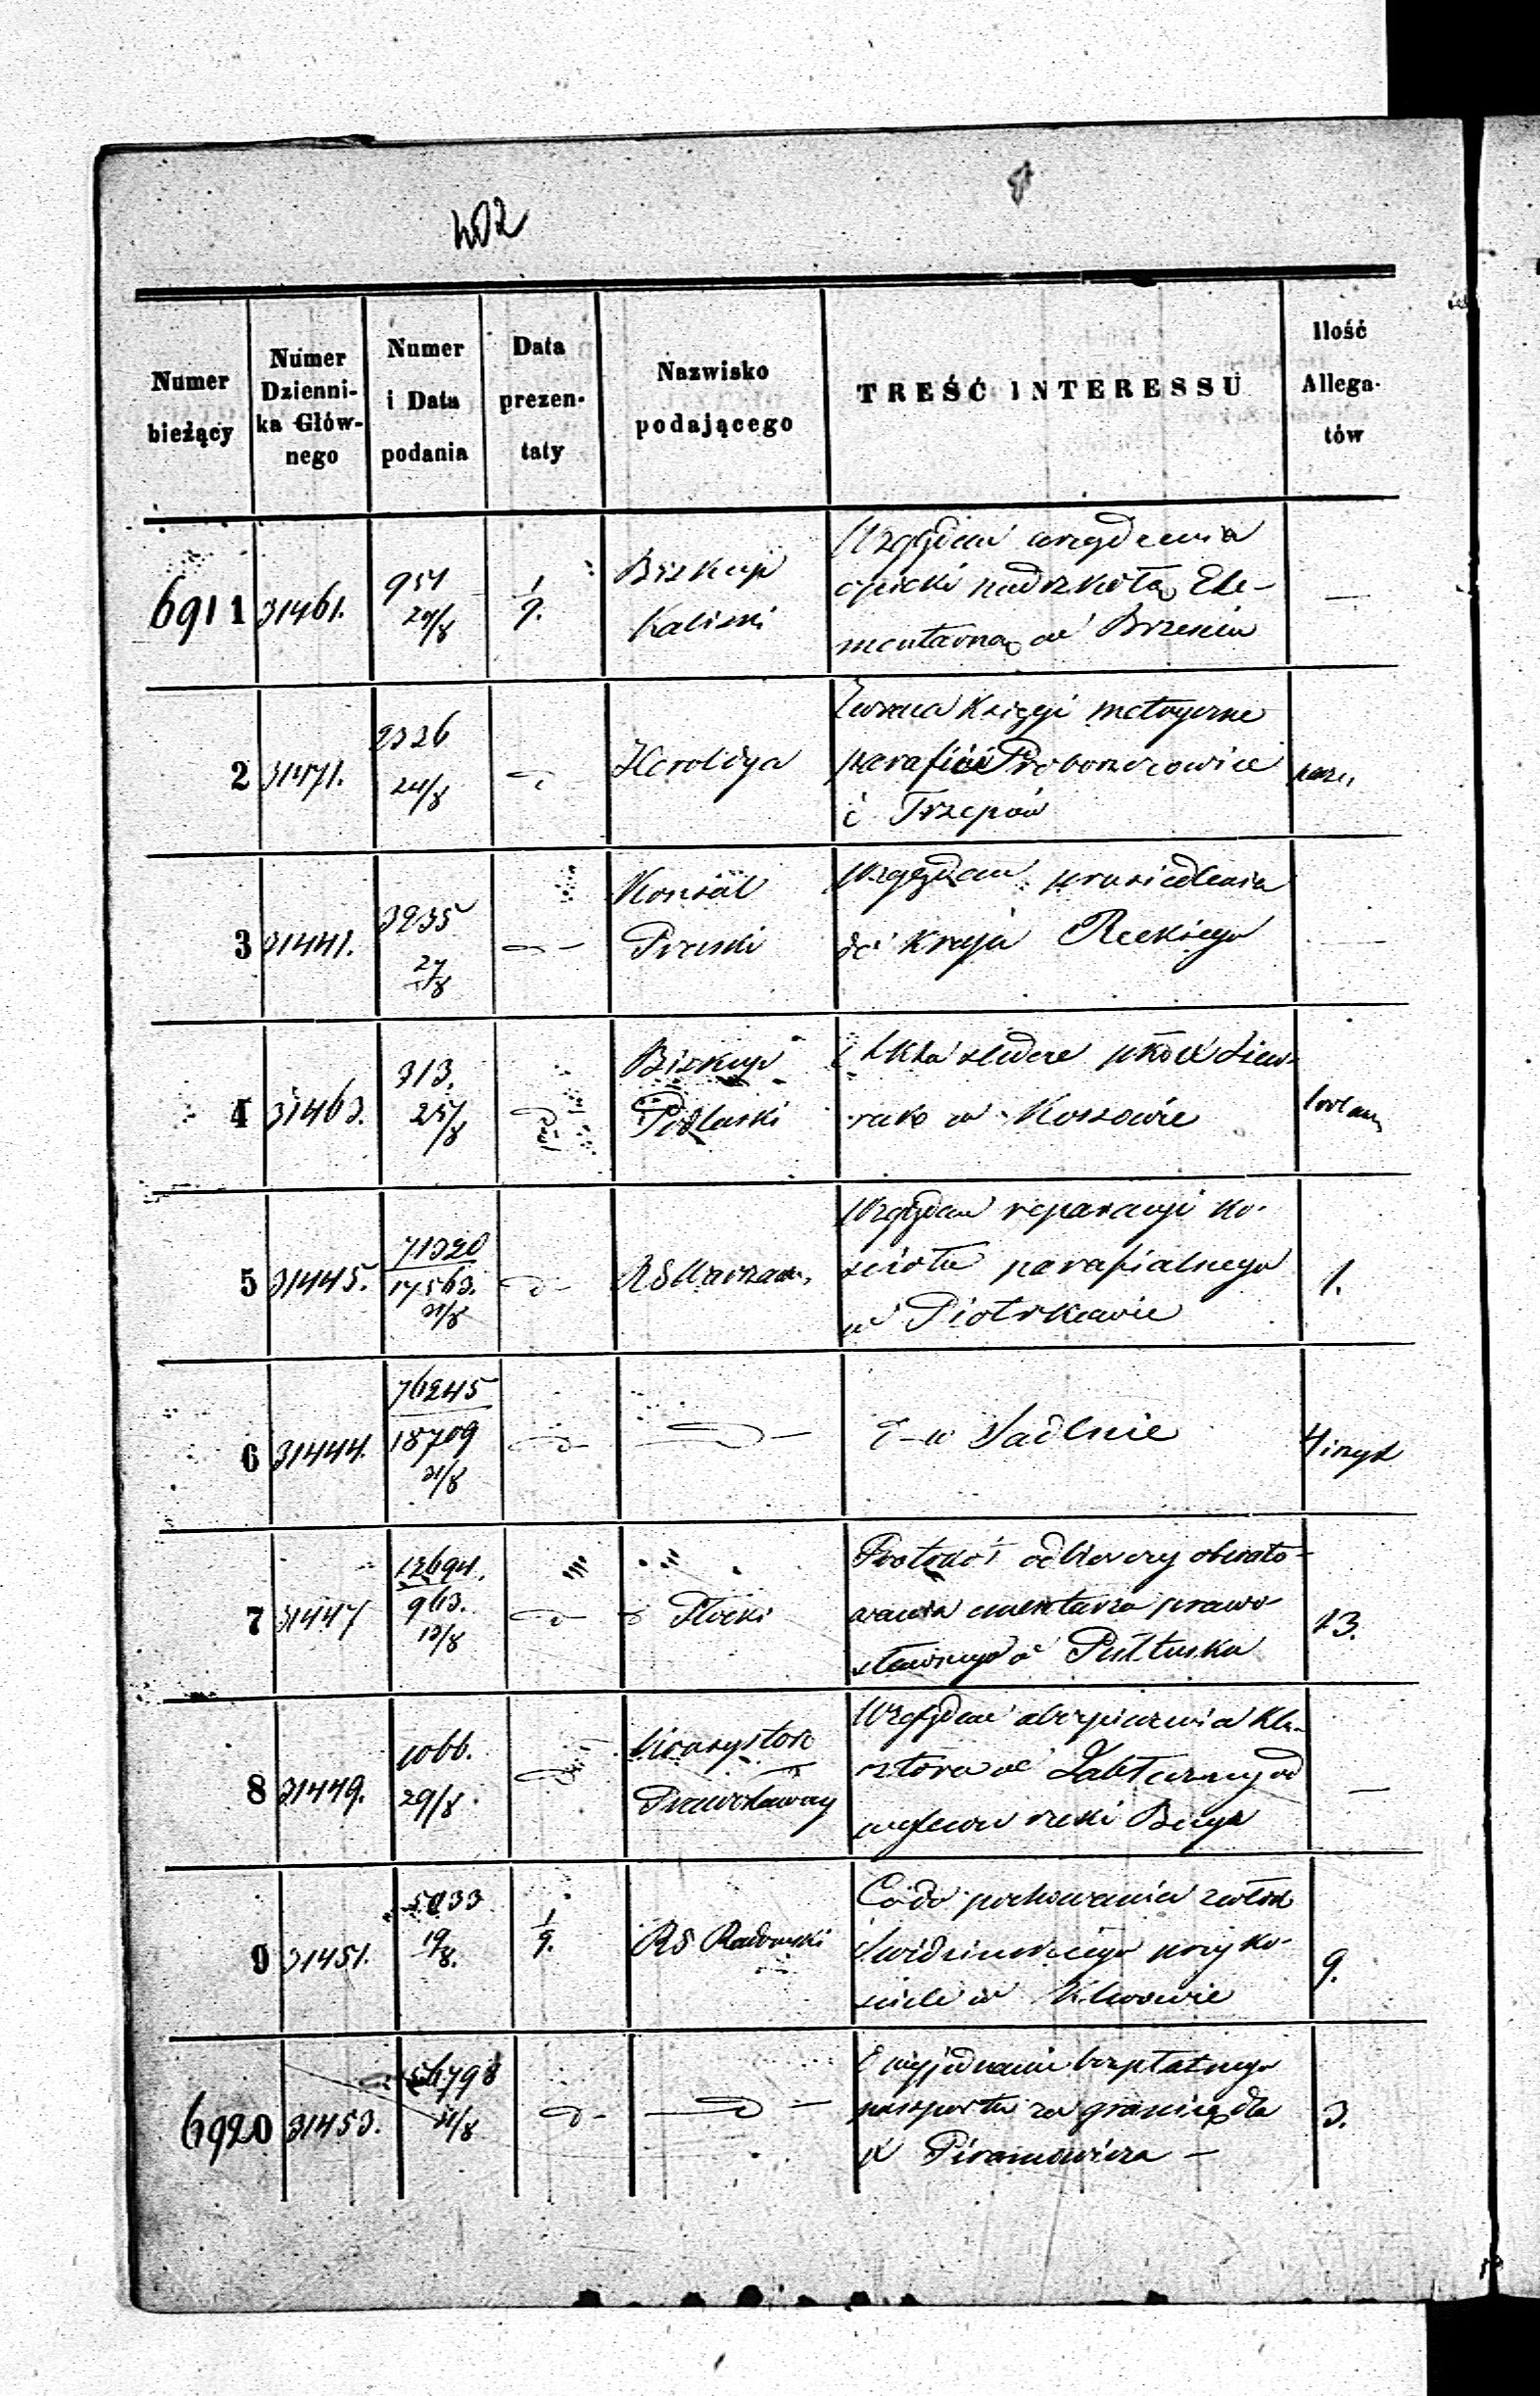 402
Numer bieżący
Numer Dzienni-ka Głów-nego
Numer i Data podania
Data prezen-taty
Nazwisko podającego
TREŚĆ INTERESSU
Ilość Allega-tów
6911 31461. 951 29/8 1/9. Biskup Kaliski
Względem urządzenia
opieki nad szkołą Ele-
mentarną w Brzeziu —
2 31471. 2326 24/8 Heroldya
Zwraca Księgi metryczne
parafii Proboszczowice
i Trzepów
3 31441. 3935 27/8 Konsul Pruski
Względem przesiedlenia
do Kraju —
4 31463. 313. 25/8 Biskup Podlaski
w Kossowie
5 31445. 71320 17563. 21/8 RG Warszaw.
Względem reparacyi ko-
ścioła parafialnego
w Piotrkowie 1.
6 31444. 76245 18709 21/8
d-o w Sadlnie
7 31447 12694. 963. 13/8 Płocki
Protokół odbiorczy obwało-
wania cmentarza prawo-
sławnego w Pułtusku 13.
8 31449. 1066. 29/8 Konsystorz Prawosławny
Względem ubezpieczenia kla-
sztoru w Jabłeczny od
wylewu rzeki Buga —
9 31451. 19/8. 1/9. RG Radomski
Co do pochowania zwłok
Świdzińskiego przy ko-
ściele w Klwowie 9.
6920 31453. 56798 21/8
O wyjednanie bezpłatnego
paszportu za granicę dla
X Piramowicza — 3.